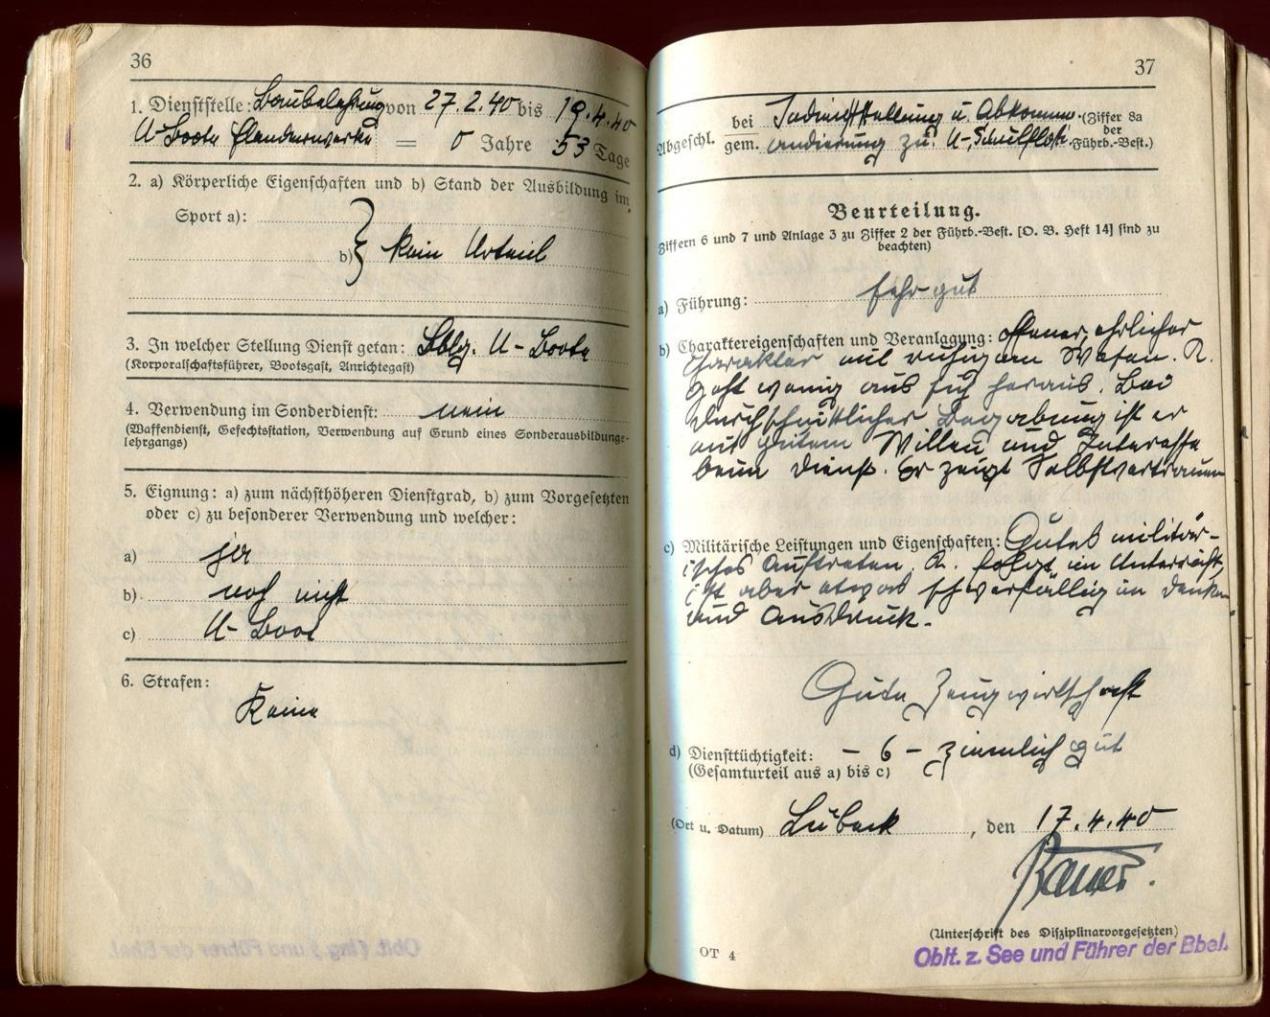 36
1. Dienststelle: Baubelehrung von 27.2.40 bis 19.4.40
U-Boote Flenderwerke = 0 Jahre 53 Tage
2. a) Körperliche Eigenschaften und b) Stand der Ausbildung im
Sport a):
b) kein Urteil
3. In welcher Stellung Dienst getan: Bblg. U-Boote
(Korporalschaftsführer, Bootsgast, Anrichtegast)
4. Verwendung im Sonderdienst: nein
(Waffendienst, Gefechtsstation, Verwendung auf Grund eines Sonderausbildungs-
lehrgangs)
5. Eignung: a) zum nächsthöheren Dienstgrad, b) zum Vorgesetzten
oder c) zu besonderer Verwendung und welcher:
a) ja
b) noch nicht
c) U-Boot
6. Strafen:
Keine
37
Abgeschl. bei Indienststellung u. Abkomm- (Ziffer 8a
der
gem. andierung zu: U-Schulflott. Führb.-Best.)
Beurteilung.
Ziffern 6 und 7 und Anlage 3 zu Ziffer 2 der Führb.-Best. [O. B. Heft 14] sind zu
beachten)
a) Führung: sehr gut
b) Charaktereigenschaften und Veranlagung: offener, ehrlicher
Charakter mit ruhigem Wesen. R.
geht wenig aus sich heraus. Bei
durchschnittlicher Begabung ist er
mit gutem Willen und Interesse
beim Dienst. Er zeigt Selbstvertrauen
c) Militärische Leistungen und Eigenschaften: Gutes militär-
isches Auftreten. R. folgt im Unterricht,
ist aber etwas schwerfällig im Denken
und Ausdruck.
Gute Zeugwirtschaft
d) Diensttüchtigkeit: – 6 – ziemlich gut
(Gesamturteil aus a) bis c)
(Ort u. Datum) Lübeck, den 17.4.40
(Unterschrift des Disziplinarvorgesetzten)
OT 4
Oblt. z. See und Führer der Bbel.